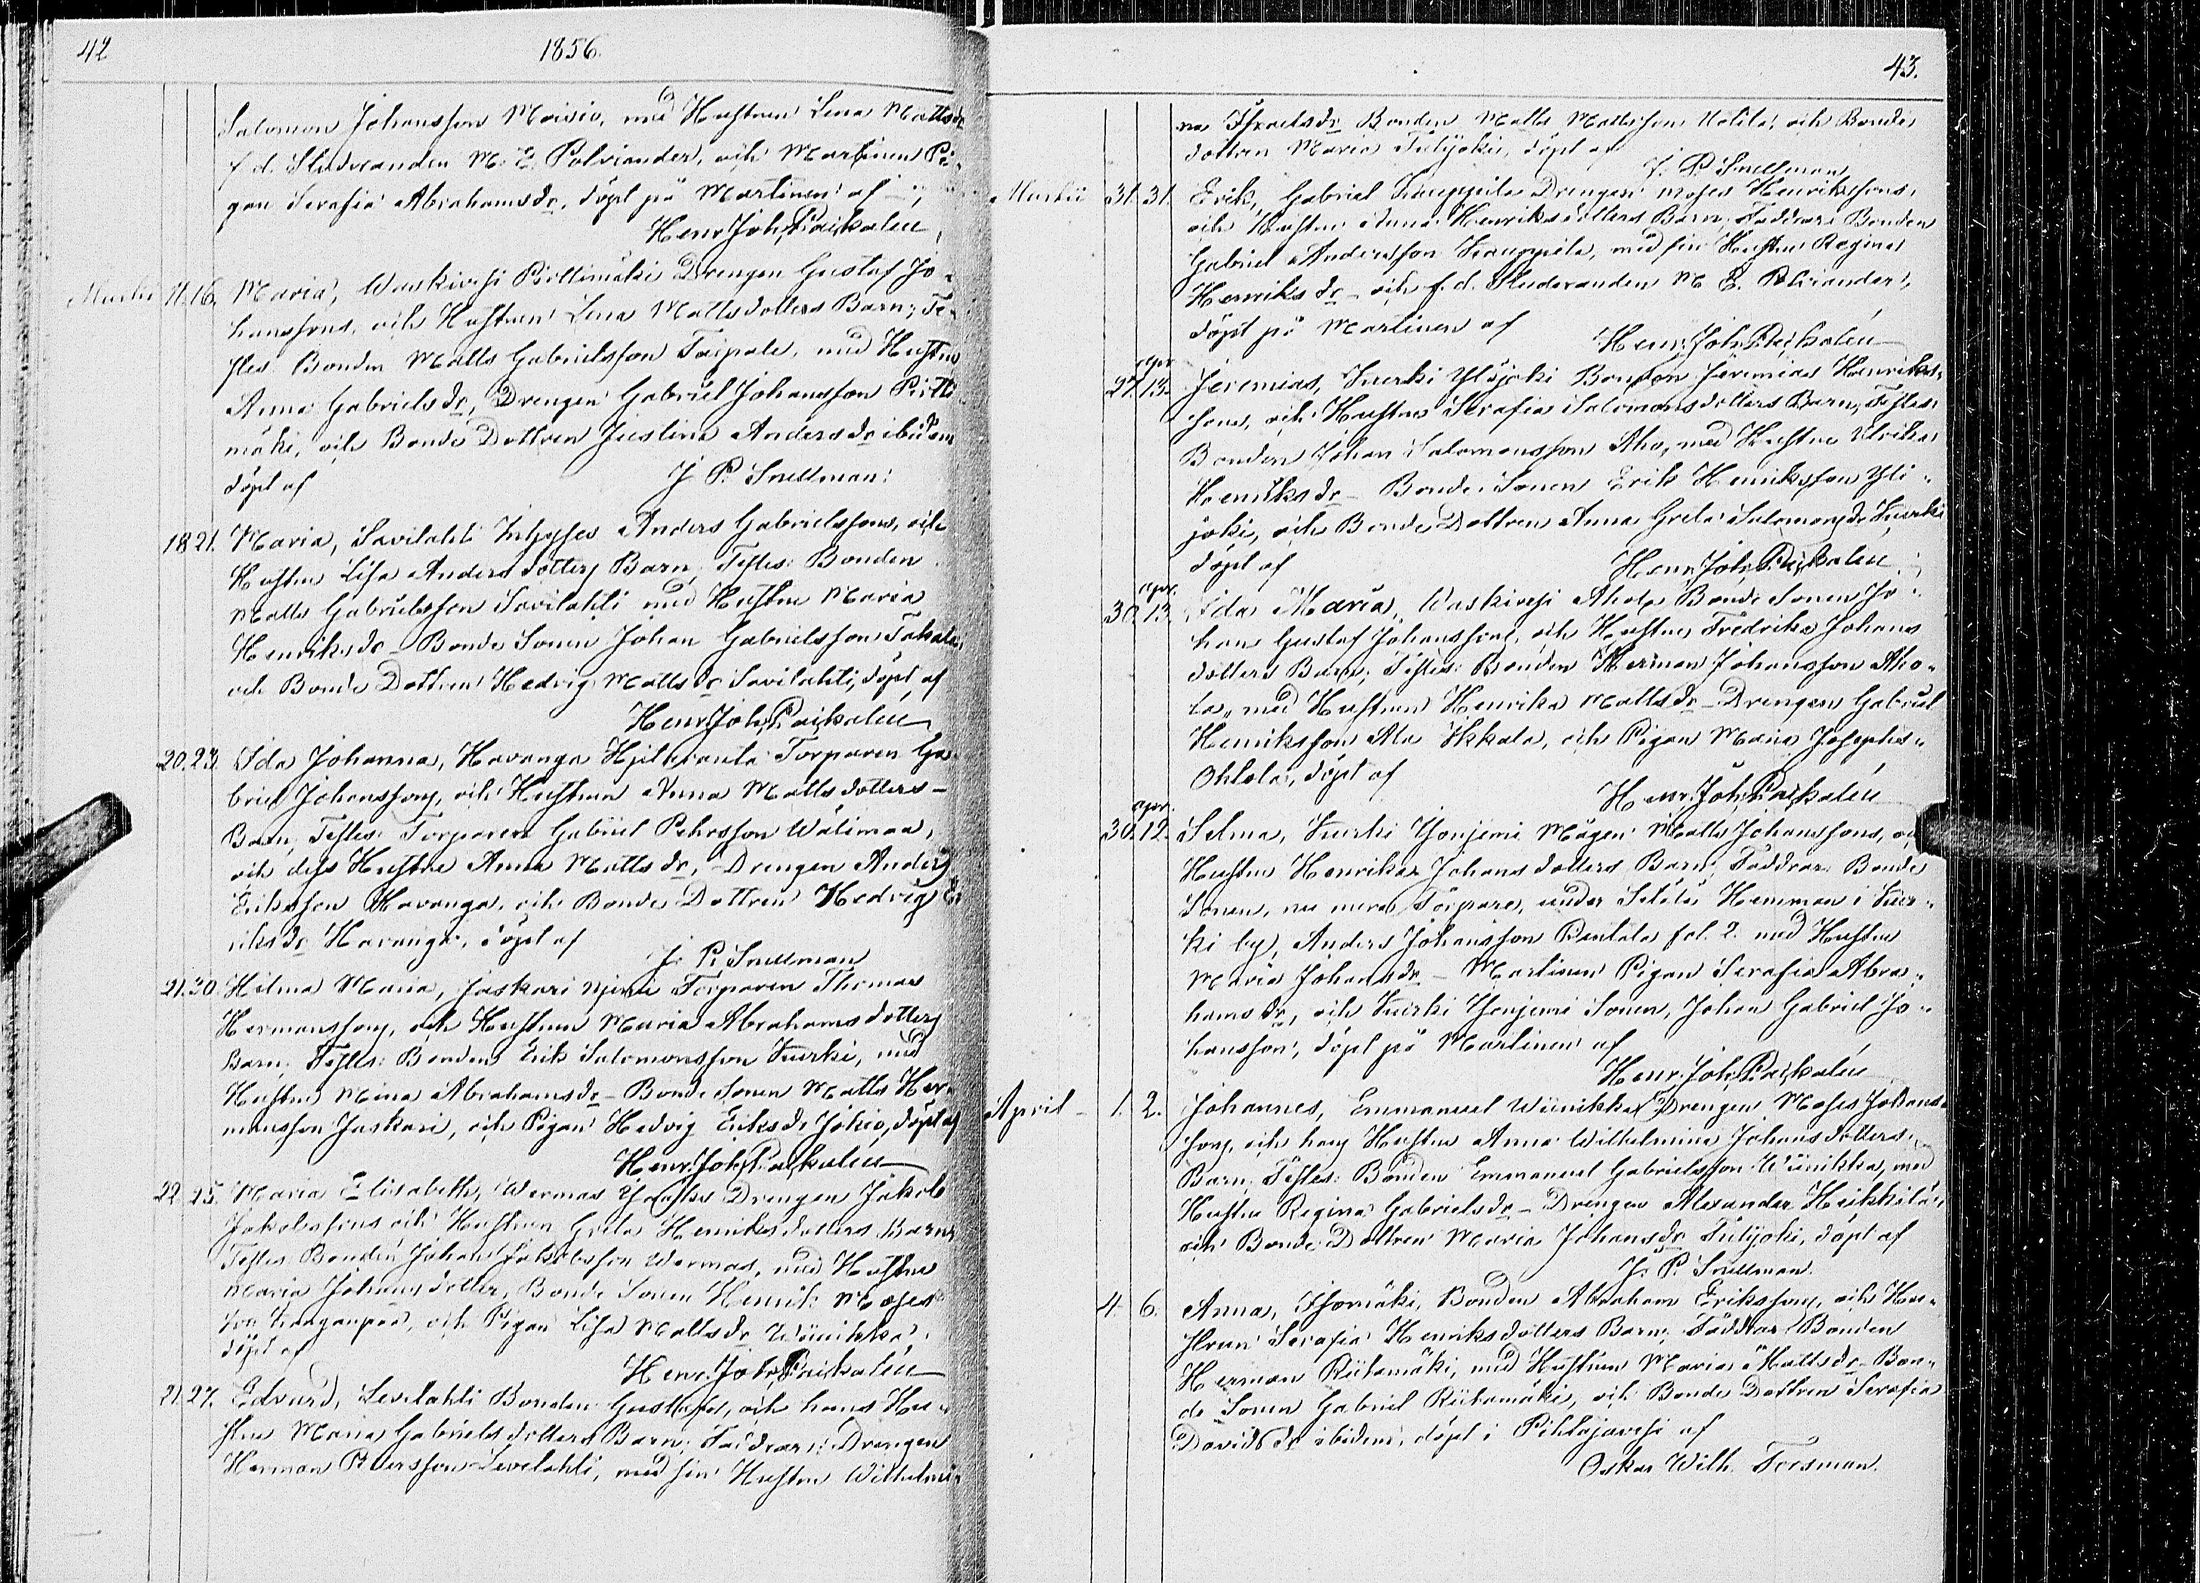 42 1856.
Salomon Johansson Moisio, med Hustrun Lena Mattsdr
f. d. Studeranden M. E. Polviander, och Martinen Pi-
gan Serafia Abrahamsdr, döpt på Martinen af
Henr. Joh. Paikaleu
Martii 11. 16. Maria, Waskivesi Pölttimäki Drengen Gustaf Jo-
hanssons, och Hustrun Lena Mattsdotters Barn; Te-
stes Bonden Matts Gabrielsson Taipale, med Hustru
Anna Gabrielsdr, Drengen Gabriel Johansson
mäki, och Bonde Dottren Justina Andersdr ibidem
döpt af J. P. Snellman.
18. 21. Maria, Savilahti Inhyses Anders Gabrielssons, och
Hustrun Lisa Andersdotters Barn, Testes: Bonden
Matts Gabrielsson Savilahti med Hustru Maria
Henriksdr - Bonde Sonen Johan Gabrielsson Tokola,
och Bonde Dottren Hedvig Mattsdr Savilahti, döpt af
Henr. Joh. Paikaleu
20. 23. Ida Johanna, Havanga Torparen Ga-
briel Johanssons, och Hustrun Anna Mattsdotters -
Barn, Testes: Torparen Gabriel Pehrsson Wälimaa,
och dess Hustru Anna Mattsdr, - Drengen Anders
Eriksson Havanga, och Bonde Dottren Hedvig E-
riksdr Havanga, döpt af
J. P. Snellman
21. 30. Hilma Maria, Jaskari Torparen Thomas
Hermanssons, och Hustrun Maria Abrahamsdotters
Barn; Testes: Bonden Erik Salomonsson Kurki, med
Hustru Mina Abrahamsdr - Bonde Sonen Matts Her-
mansson Jaskari, och Pigan Hedvig Eriksdr Jokio, döpt af
Henr. Joh. Paikaleu
22. 25. Maria Elisabeth, Wermas Drengen Jakob
Jakobssons och Hustrun Greta Henriksdotters Barn
Testes Bonden Johan Jakobsson Wermas, med Hustru
Maria Johansdotter, Bonde Sonen Henrik Moses-
son och Pigan Lisa Mattsdr Wiinikka,
döpt af
Henr. Joh. Paikaleu
21. 27. Edvard, Levilahti Bonden Gustafs, och hans Hu-
stru Maria Gabrielsdotters Barn; Faddrar: Drengen
Herman Petersson Levilahti, med sin Hustru Wilhelmi-
43.
na Israelsdr Bonden Matts Mattsson och Bonde
dottren Maria Julijoki, döpt af
J. P. Snellman
Martii 31. 31. Erik, Gabriel Kauppila Drengen Moses Henrikssons,
och Hustrun Anna Henriksdotters Barn; Faddrar: Bonden
Gabriel Andersson Kauppila, med sin Hustru Regina
Henriksdr - och f. d. Studeranden M. E. Polviander,
döpt på Martinen af
Henr. Joh. Paikaleu
apr
27. 13. Jeremias, Kurki Ylijoki Bonden Jeremias Henriks-
sons, och Hustrun Serafia Salomonsdotters Barn, Testes:
Bonden Johan Salomonsson Aho, med Hustru Ulrika
Henriksdr - Bonde Sonen Erik Henriksson Yli-
joki, och Bonde Dottren Anna Greta Salomonsdr Kurki
döpt af
Henr. Joh. Paikaleu
apr.
30. 13. Ida Maria, Waskivesi Ahola Bonde Sonen Jo-
han Gustaf Johanssons, och Hustrun Fredrika Johans
dotters Barn; Testes: Bonden Herman Johansson Aho-
la, med Hustrun Henrika Mattsdr - Drengen Gabriel
Henriksson Ala Ikkala, och Pigan Maria Josephs-
Ohtola, döpt af
Henr. Joh. Paikaleu
apr.
30. 12. Selma, Kurki Mågen Matts Johanssons, och
Hustrun Henrika Johansdotters Barn; Faddrar: Bonde
Sonen, nu mera Torpare, under Hemman i Kur-
ki by, Anders Johansson Rantala fol. 2. med Hustru
Maria Johansdr - Martinen Pigan Serafia Abra-
hamsdr, och Kurki Sonen, Johan Gabriel Jo-
hansson, döpt på Martinen af
Henr. Joh. Paikaleu
April - 1. 2. Johannes, Emmanuel Wiinikka Drengen Moses Johans-
sons, och hans Hustru Anna Wilhelmina Johansdotters
Barn; Testes: Bonden Emmanuel Gabrielsson Wiinikka, med
Hustru Regina Gabrielsdr - Drengen Alexander Heikkilä,
och Bonde Dottren Maria Johansdr Julijoki, döpt af
J. P. Snellman.
4. 6. Anna, Isomäki, Bonden Abraham Erikssons, och Hu-
strun Serafia Henriksdotters Barn; Faddrar: Bonden
Herman Riihimäki, med Hustrun Maria Mattsdr - Bon-
de Sonen Gabriel Riihimäki, och Bonde Dottren Serafia
Davidsdr ibidem, döpt i Pihlajavesi af
Oskar Wilh. Forsman.